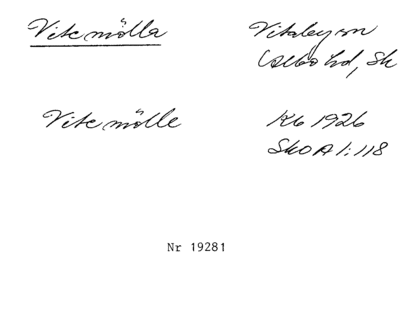 Vitemölla
Vitaby sn
Albo hd, Sk
Vitemölle
Kb 1926
SkO A 1:118
Nr 19281